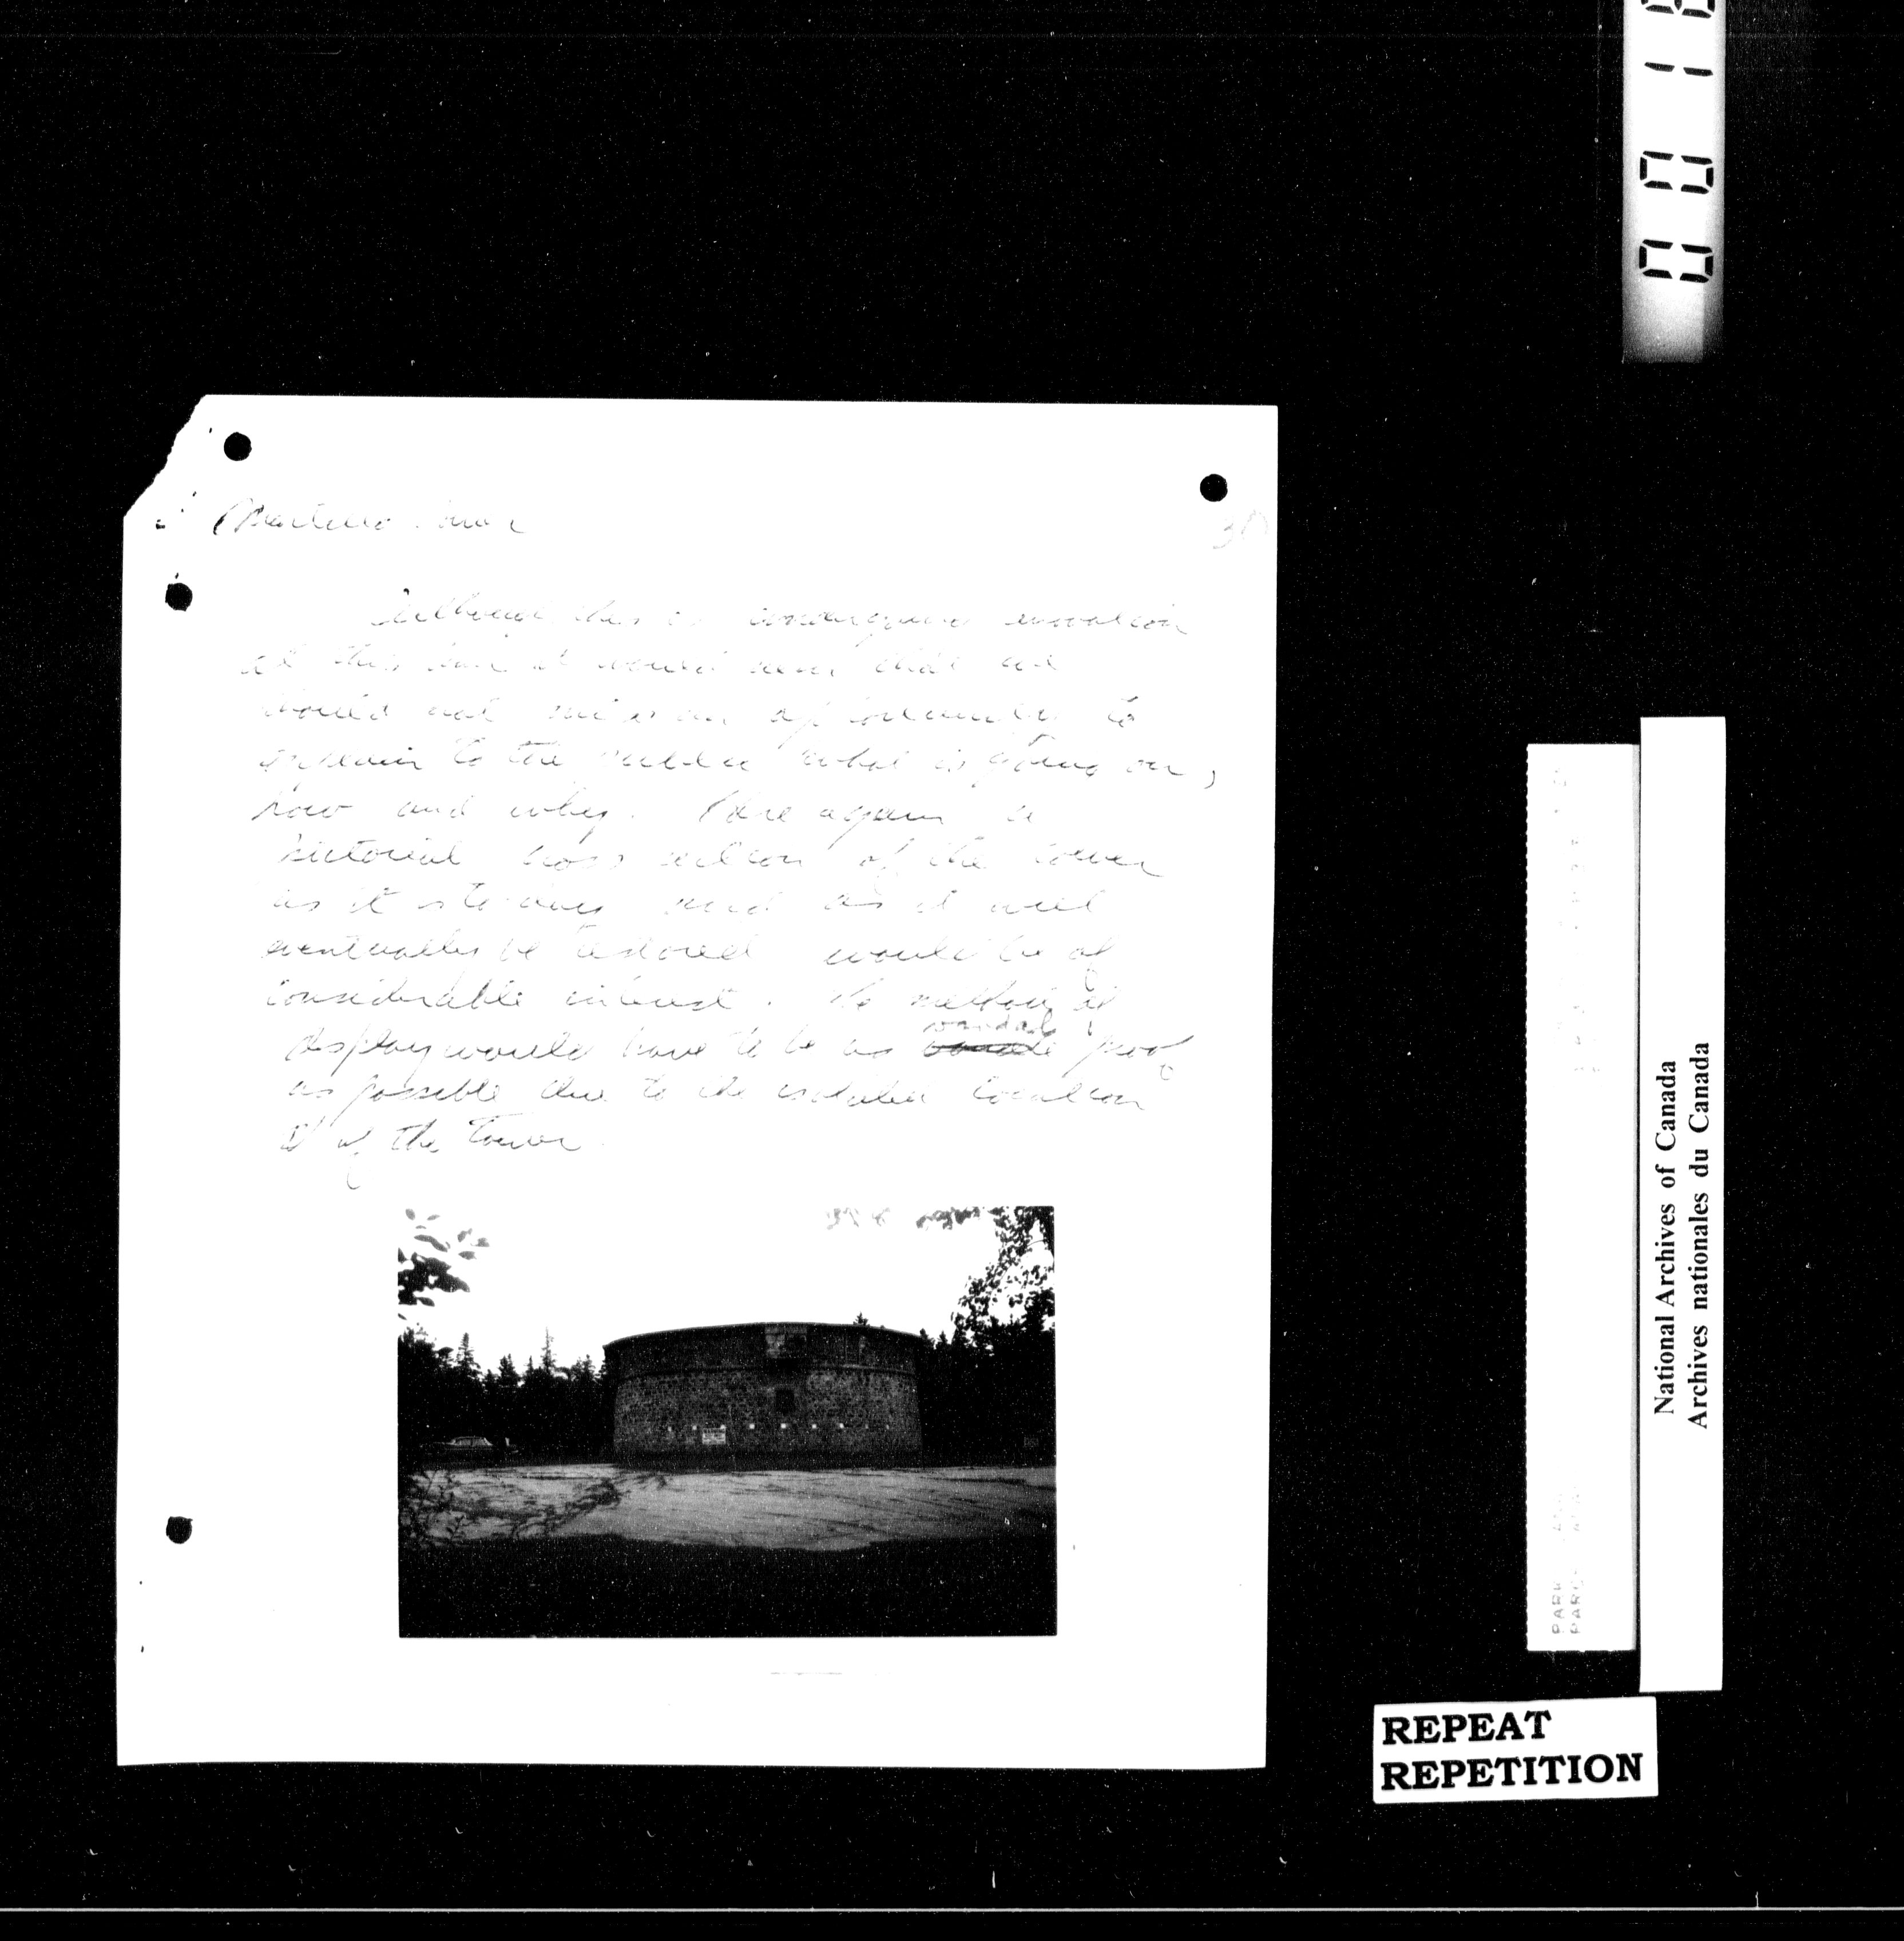 Martello Tower
Although this is undergoing renovation
at this time it would seem that we
should not miss an opportunity to
explain to the public what is going on,
how and why. Here again a
pictorial cross section of the tower
as it is today and as it will
eventually be restored would be of
considerable interest. The method of
display would have to be as vandal proof
as possible due to the isolated location
of the Tower
National Archives of Canada
Archives nationales du Canada
REPEAT
REPETITION